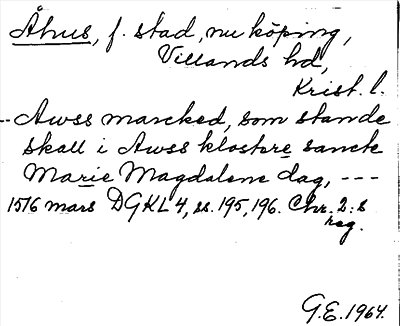 Åhus, f. stad, nu köping,
Villands hd,
Krist. l.
-- Awss marcked, som stande
skall i Awss klostere sancte
Marie Magdalene dag, ---
1516 mars DGKL 4, ss. 195, 196. Chr. 2:s
reg.
G.E. 1964.